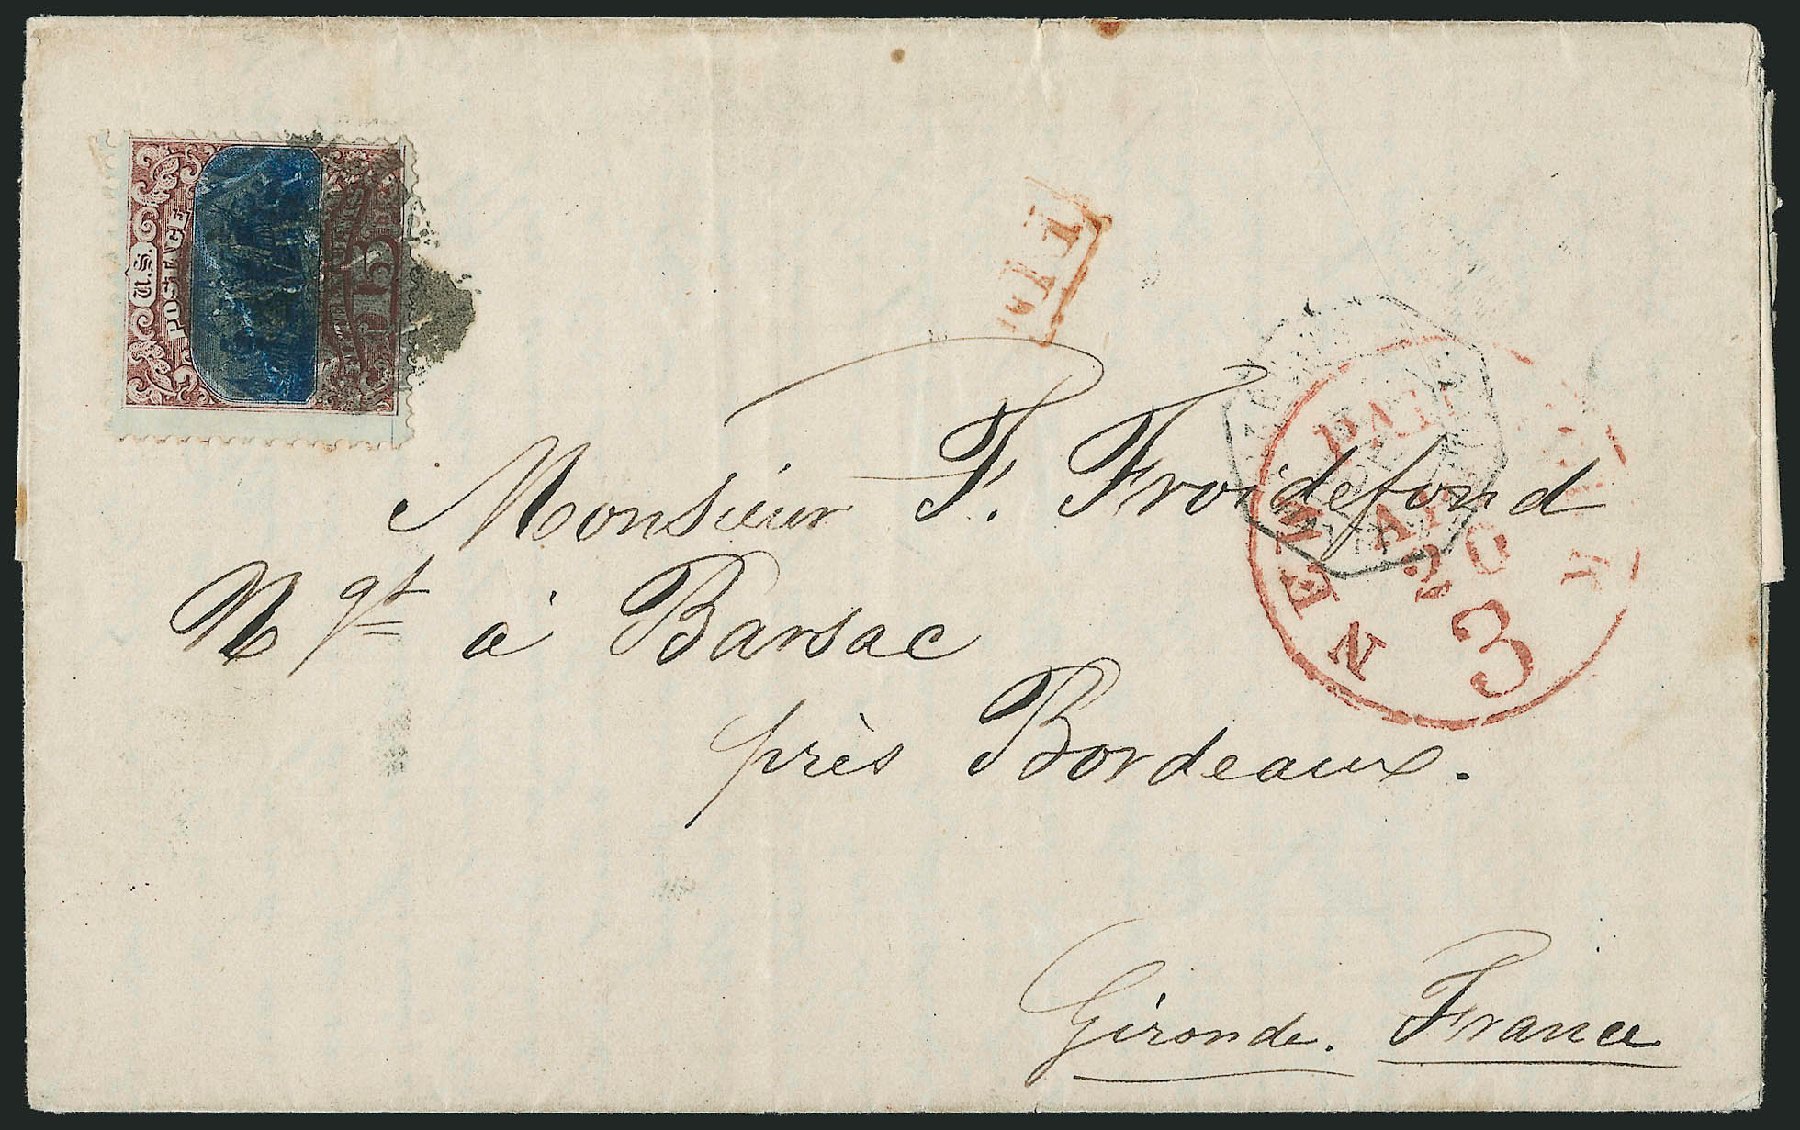 U.S.
POSTAGE
15
Monsieur F. Froidefond
Ngt à Barsac
près Bordeaux.
Gironde. France
NEW
PAID
APR
20
3